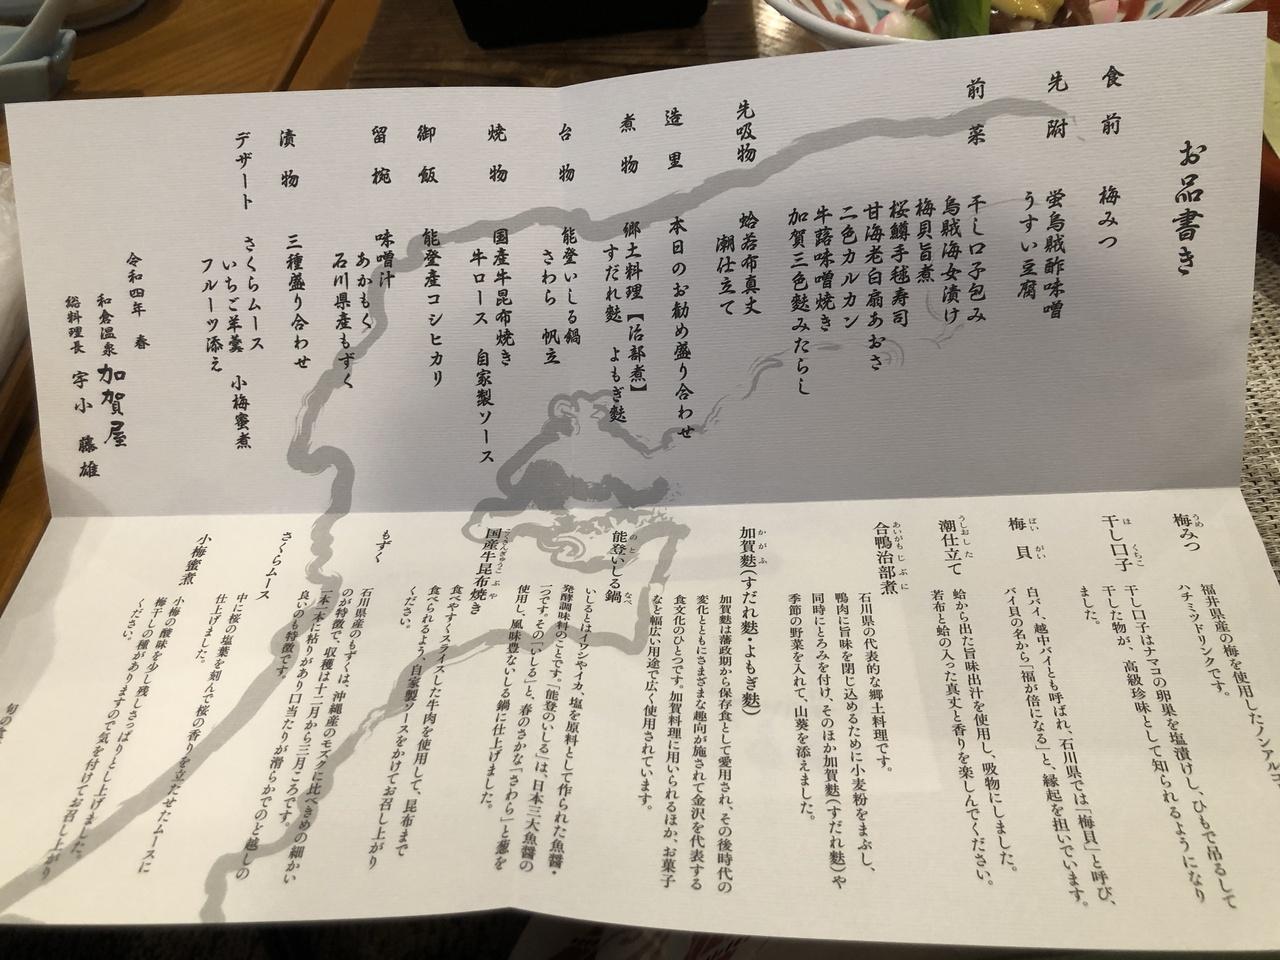 お品書き
食前 梅みつ
先附 蛍烏賊酢味噌
うすい豆腐
前菜 干し口子包み
烏賊海女漬け
梅貝旨煮
桜鱒手毬寿司
甘海老白扇あおさ
二色カルカン
牛蕗味噌焼き
加賀三色麩みたらし
先吸物 蛤若布真丈
潮仕立て
造里 本日のお勧め盛り合わせ
煮物 郷土料理【治部煮】
すだれ麩 よもぎ麩
台物 能登いしる鍋
さわら 帆立
焼物 国産牛昆布焼き
牛ロース 自家製ソース
御飯 能登産コシヒカリ
留椀 味噌汁
あかもく
石川県産もずく
漬物 三種盛り合わせ
デザート さくらムース
いちご羊羹 小梅蜜煮
フルーツ添え
令和四年 春
和倉温泉 加賀屋
総料理長 宇小藤雄
梅みつ
うめ
福井県産の梅を使用したノンアルコ
ハチミツドリンクです。
干し口子
ほ くちこ
干し口子はナマコの卵巣を塩漬けし、ひもで吊るして
干した物が、高級珍味として知られるようになり
ました。
梅貝
ばい がい
白バイ、越中バイとも呼ばれ、石川県では「梅貝」と呼び、
バイ貝の名から「福が倍になる」と、縁起を担いでいます。
潮仕立て
うしおした
蛤から出た旨味出汁を使用し、吸物にしました。
若布と蛤の入った真丈と香りを楽しんでください。
合鴨治部煮
あいがもじぶに
石川県の代表的な郷土料理です。
鴨肉に旨味を閉じ込めるために小麦粉をまぶし、
同時にとろみを付け、そのほか加賀麩(すだれ麩)や
季節の野菜を入れて、山葵を添えました。
加賀麩(すだれ麩・よもぎ麩)
かがふ
加賀麩は藩政期から保存食として愛用され、その後時代の
変化とともにさまざまな趣向が施されて金沢を代表する
食文化のひとつです。加賀料理に用いられるほか、お菓子
など幅広い用途で広く使用されています。
能登いしる鍋
のと なべ
いしるとはイワシやイカ、塩を原料として作られた魚醤・
発酵調味料のことです。「能登のいしる」は、日本三大魚醤の
一つです。その「いしる」と、春のさかな「さわら」と葱を
使用し、風味豊ないしる鍋に仕上げました。
国産牛昆布焼き
こくさんぎゅうこぶや
食べやすくスライスした牛肉を使用して、昆布まで
食べられるよう、自家製ソースをかけてお召し上がり
ください。
もずく
石川県産のもずくは、沖縄産のモズクに比べきめの細かい
のが特徴で、収穫は十二月から三月ころです。
一本一本に粘りがあり口当たりが滑らかでのど越しの
良いのも特徴です。
さくらムース
中に桜の塩葉を刻んで桜の香りを立たせたムースに
仕上げました。
小梅蜜煮
小梅の酸味を少し残しさっぱりとし上げました。
梅干しの種がありますので気を付けてお召し上がり
ください。
旬の食